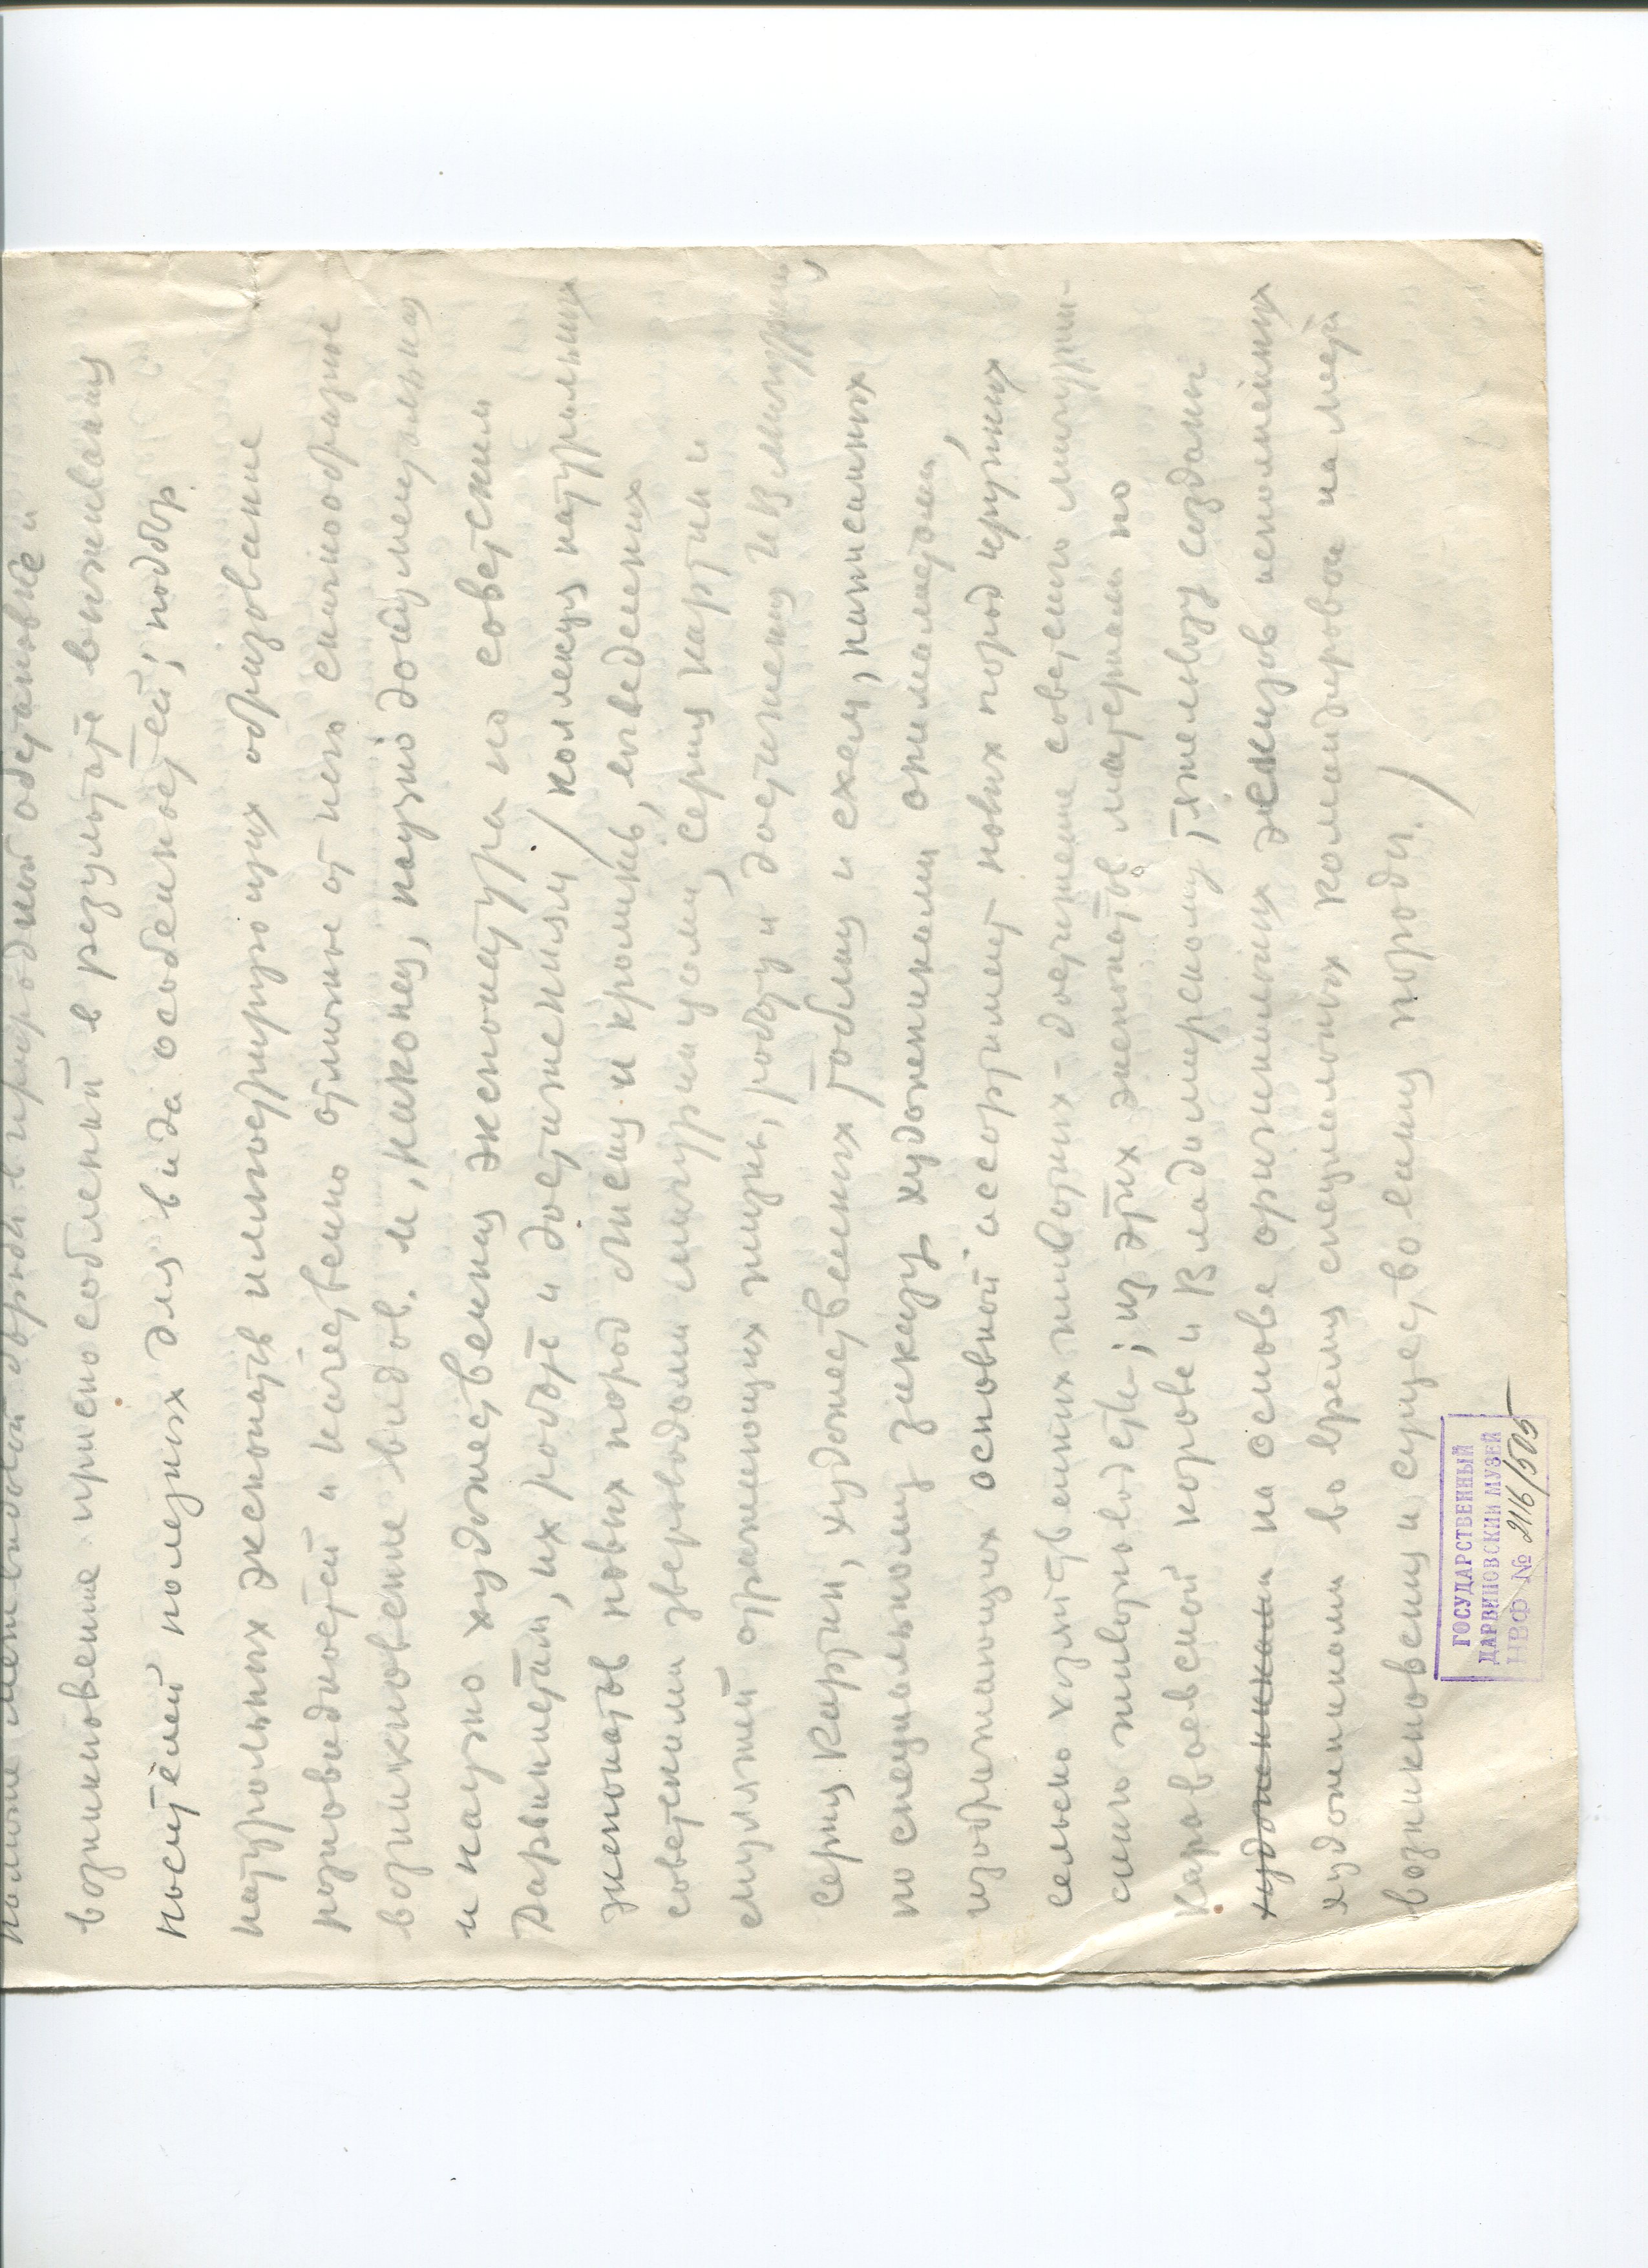 межвидовой борьбы в природной обстановке и
возникновение приспособлений в результате выживания
носителей полезных для вида особенностей; подбор
натуральных экспонатов иллюстрирующих образование
разновидностей и качественно отличные от него скачкообразное
возникновение видов. И, наконец, научно документальная
и научно художественная экспонатура по советским
Дарвинистам, их работе и достижениям / коллекция натуральных
экспонатов новых пород лисиц и кроликов, выведенных
советскими звероводами мичуринцами, серия картин и
скульптей отражающих жизнь, работу и достижения И.В. Мичурина,
серия картин, художественных таблиц и схем, написанных
по специальному заказу художниками анималистами,
изображающих основной ассортимент новых пород крупных
сельско хозяйственных животных - достижение советского мичурин-
ского животноводства; из этих экспонатов материал по
Караваевской корове и Владимирскому тяжеловозу созданы
художниками на основе оригинальных эскизов исполненных
художником во время специальных командировок на места
возникновения и существования породы. /
ГОСУДАРСТВЕННЫЙ
ДАРВИНОВСКИЙ МУЗЕЙ
НВФ № 2116/505